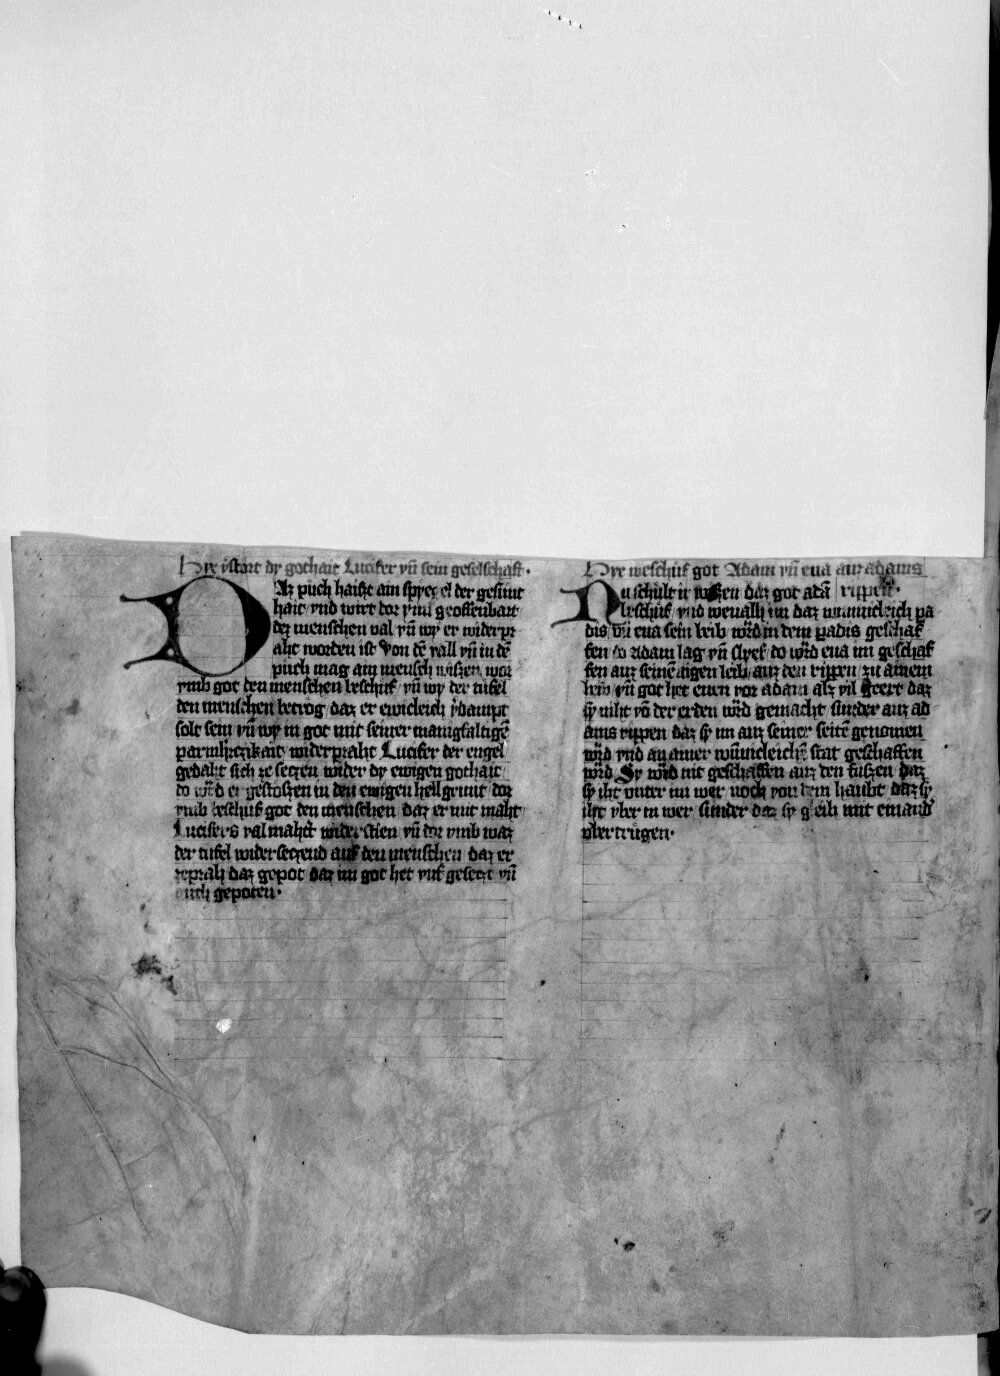 Hye vstort dy gothait Lucifer vn̄ sein geselschaft·
DAz puch haist ain spyegel der gesunt
hait vnd wirt dor ynn geoffenbart
dez menschen val vn̄ wy er widerpr
aht worden ist Von dē vall vn̄ in dē
puch mag ain mensch wiszen wor
vmb got den menschen beschuf vn̄ wy der tufel
den menschen betrog daz er ewicleich v̄dampt
solt sein vn̄ wy in got mit seiner manigfaltigē
parmhrczikait widerpraht Lucifer der engel
gedaht sich ze seczen wider dy ewigen gothait
do w̄rd er gestoszen in den ewigen hellgrunt dor
vmb beschuf got den menschen daz er mit maht
Lucifers val maht widerstien vn̄ dor vmb waz
der tufel widerseczend auf den menschen daz er
zeprah daz gepot daz im got het vuf gesetzt vn̄
auch gepoten·
Hye weschuf got Adam vn̄ eua auz adams
rippen·
Nu schult ir wiszen daz got adā
beschuf vnd wevalh im daz wunnicleich pa
dis vn̄ eua sein leib w̄rd in dem padis geschaf
fen do Adam lag vn̄ slyef do w̄rd eua im geschaf
fen auz seinē aigen leib auz den rippen zu ainem
leib vn̄ got het euen vor adam alz vil geert daz
sy niht vō der erden w̄rd gemacht sunder auz ad
ams rippen daz sy im auz seiner seitē genomen
w̄rd vnd an ainer wūnicleichē stat geschaffen
w̄rd Sy w̄rd nit geschaffen auz den fuszen daz
sy iht vnter im wer noch von dem haubt daz sy
iht vber in wer sunder daz sy gleih mit einand
vber trugen·